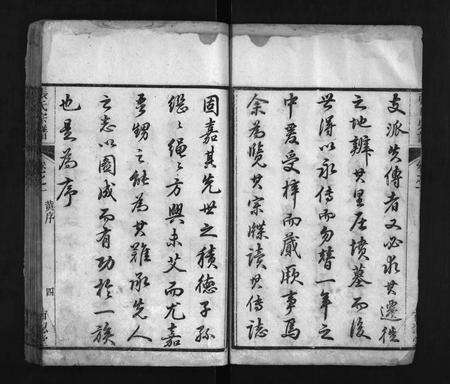 支派失傳者又必求其遷徙
之地辨其里居墳墓而後
世得以永傳而勿替一年之
中爰受梓而蕆厥事焉
余為覽其宗牒讀其傳誌
固嘉其先世之積德子孫
繼繼繩繩方興未艾而尤嘉
吾甥之能為其難承先人
之志以圖成而有功於一族
也是為序
黃序
四